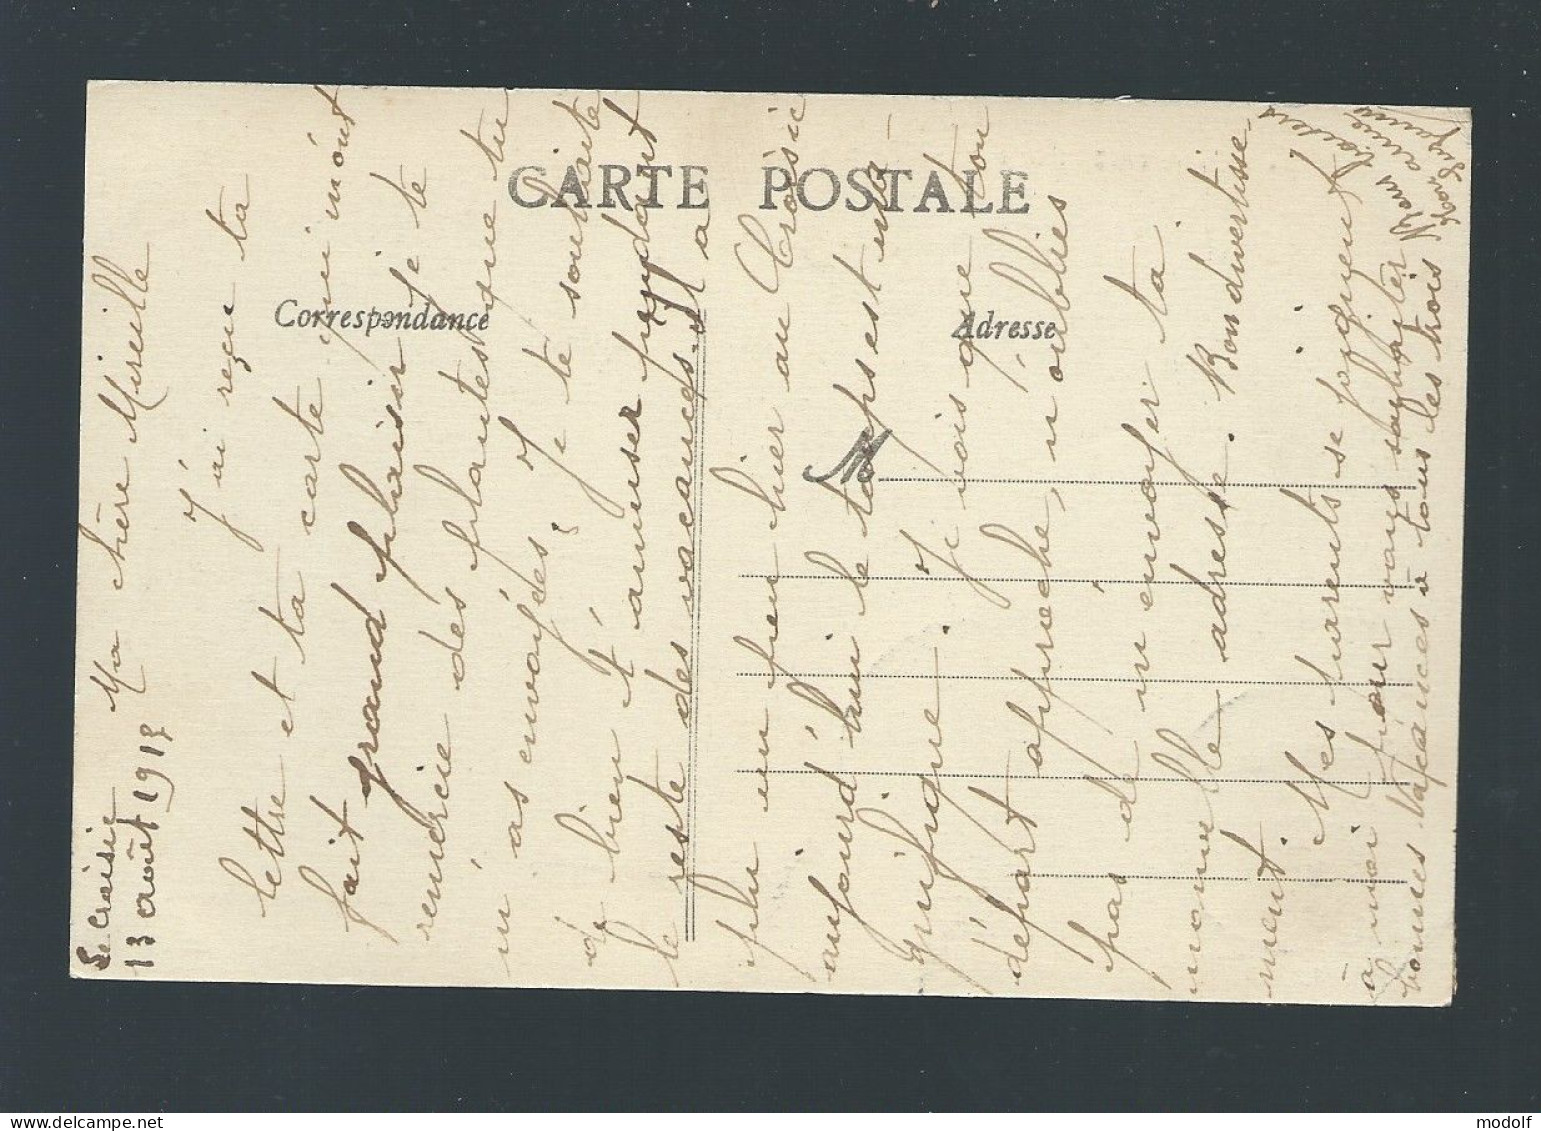 CARTE POSTALE
Correspondance
Adresse
M
Le Croisic
13 août 1918
Ma chère Mireille
J'ai reçu ta
lettre et ta carte qui m'ont
fait grand plaisir je te
remercie des plantes que tu
m'as envoyées. Je te souhaite
de bien t'amuser pendant
le reste des vacances. Il a
plu un peu hier au Croisic
aujourd'hui le temps est ma-
gnifique. Je vois que ton
départ approche, n'oublies
pas de m'envoyer ta
nouvelle adresse. Bon divertisse-
ment. Mes parents se joignent
à moi pour vous souhaiter
bonnes vacances à tous les trois
Ton amie
www.delcampe.net
modolf